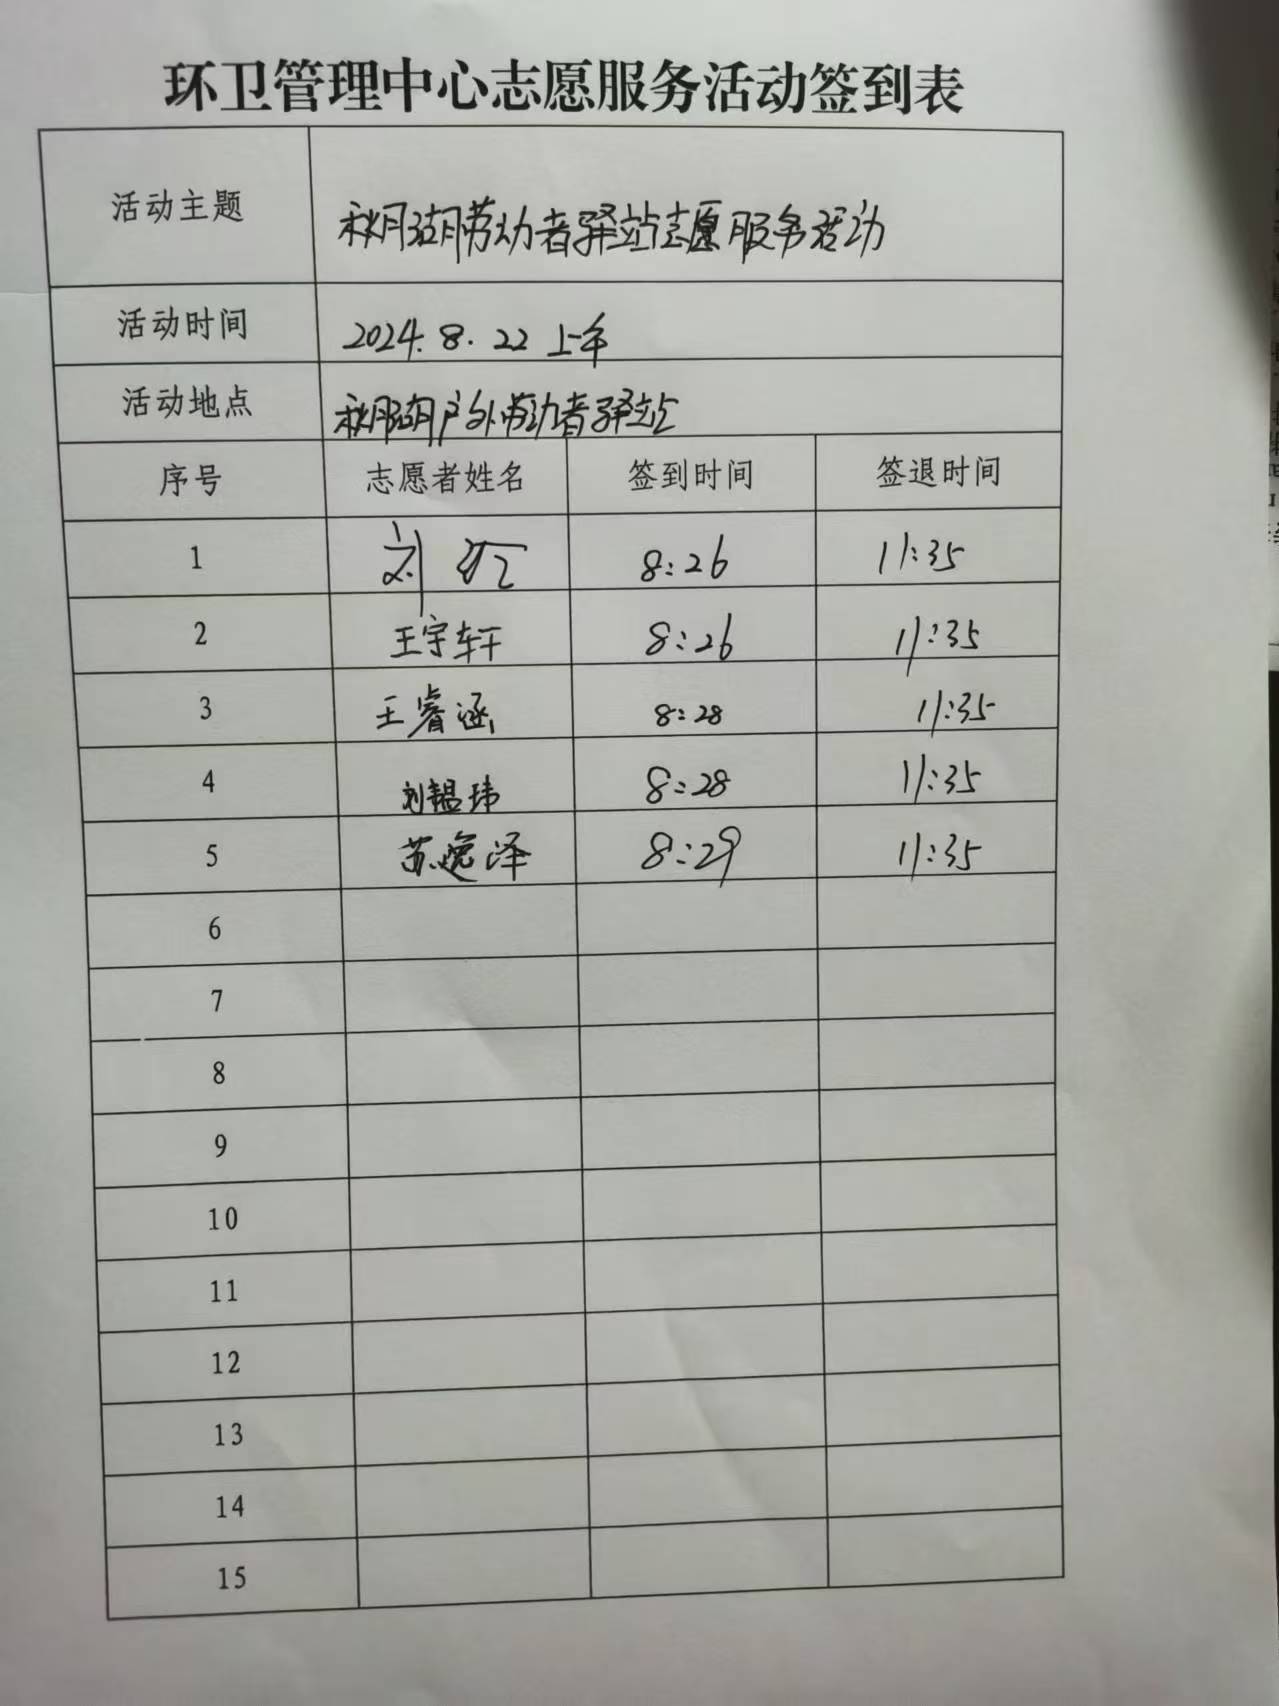 环卫管理中心志愿服务活动签到表
活动主题 秋月湖劳动者驿站志愿服务活动
活动时间 2024.8.22 上午
活动地点 秋月湖户外劳动者驿站
序号 志愿者姓名 签到时间 签退时间
1 刘 8:26 11:35
2 王宇轩 8:26 11:35
3 王睿涵 8:28 11:35
4 刘韫玮 8:28 11:35
5 苏逸泽 8:29 11:35
6
7
8
9
10
11
12
13
14
15